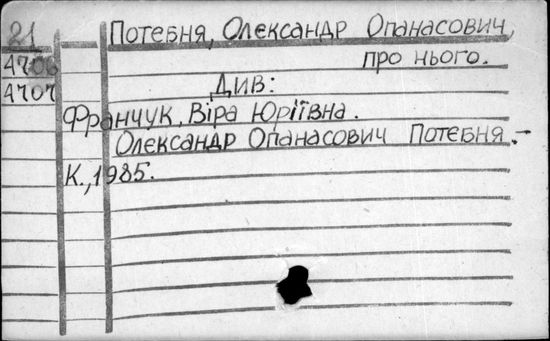 21
Потебня, Олександр Опанасович,
4706
про нього.
4707
Див:
Франчук, Віра Юріївна.
Олександр Опанасович Потебня.-
К., 1985.